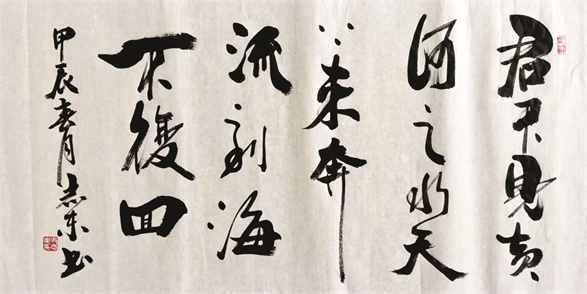 君不見黄
河之水天
上来奔
流到海
不復回
甲辰春月志东书